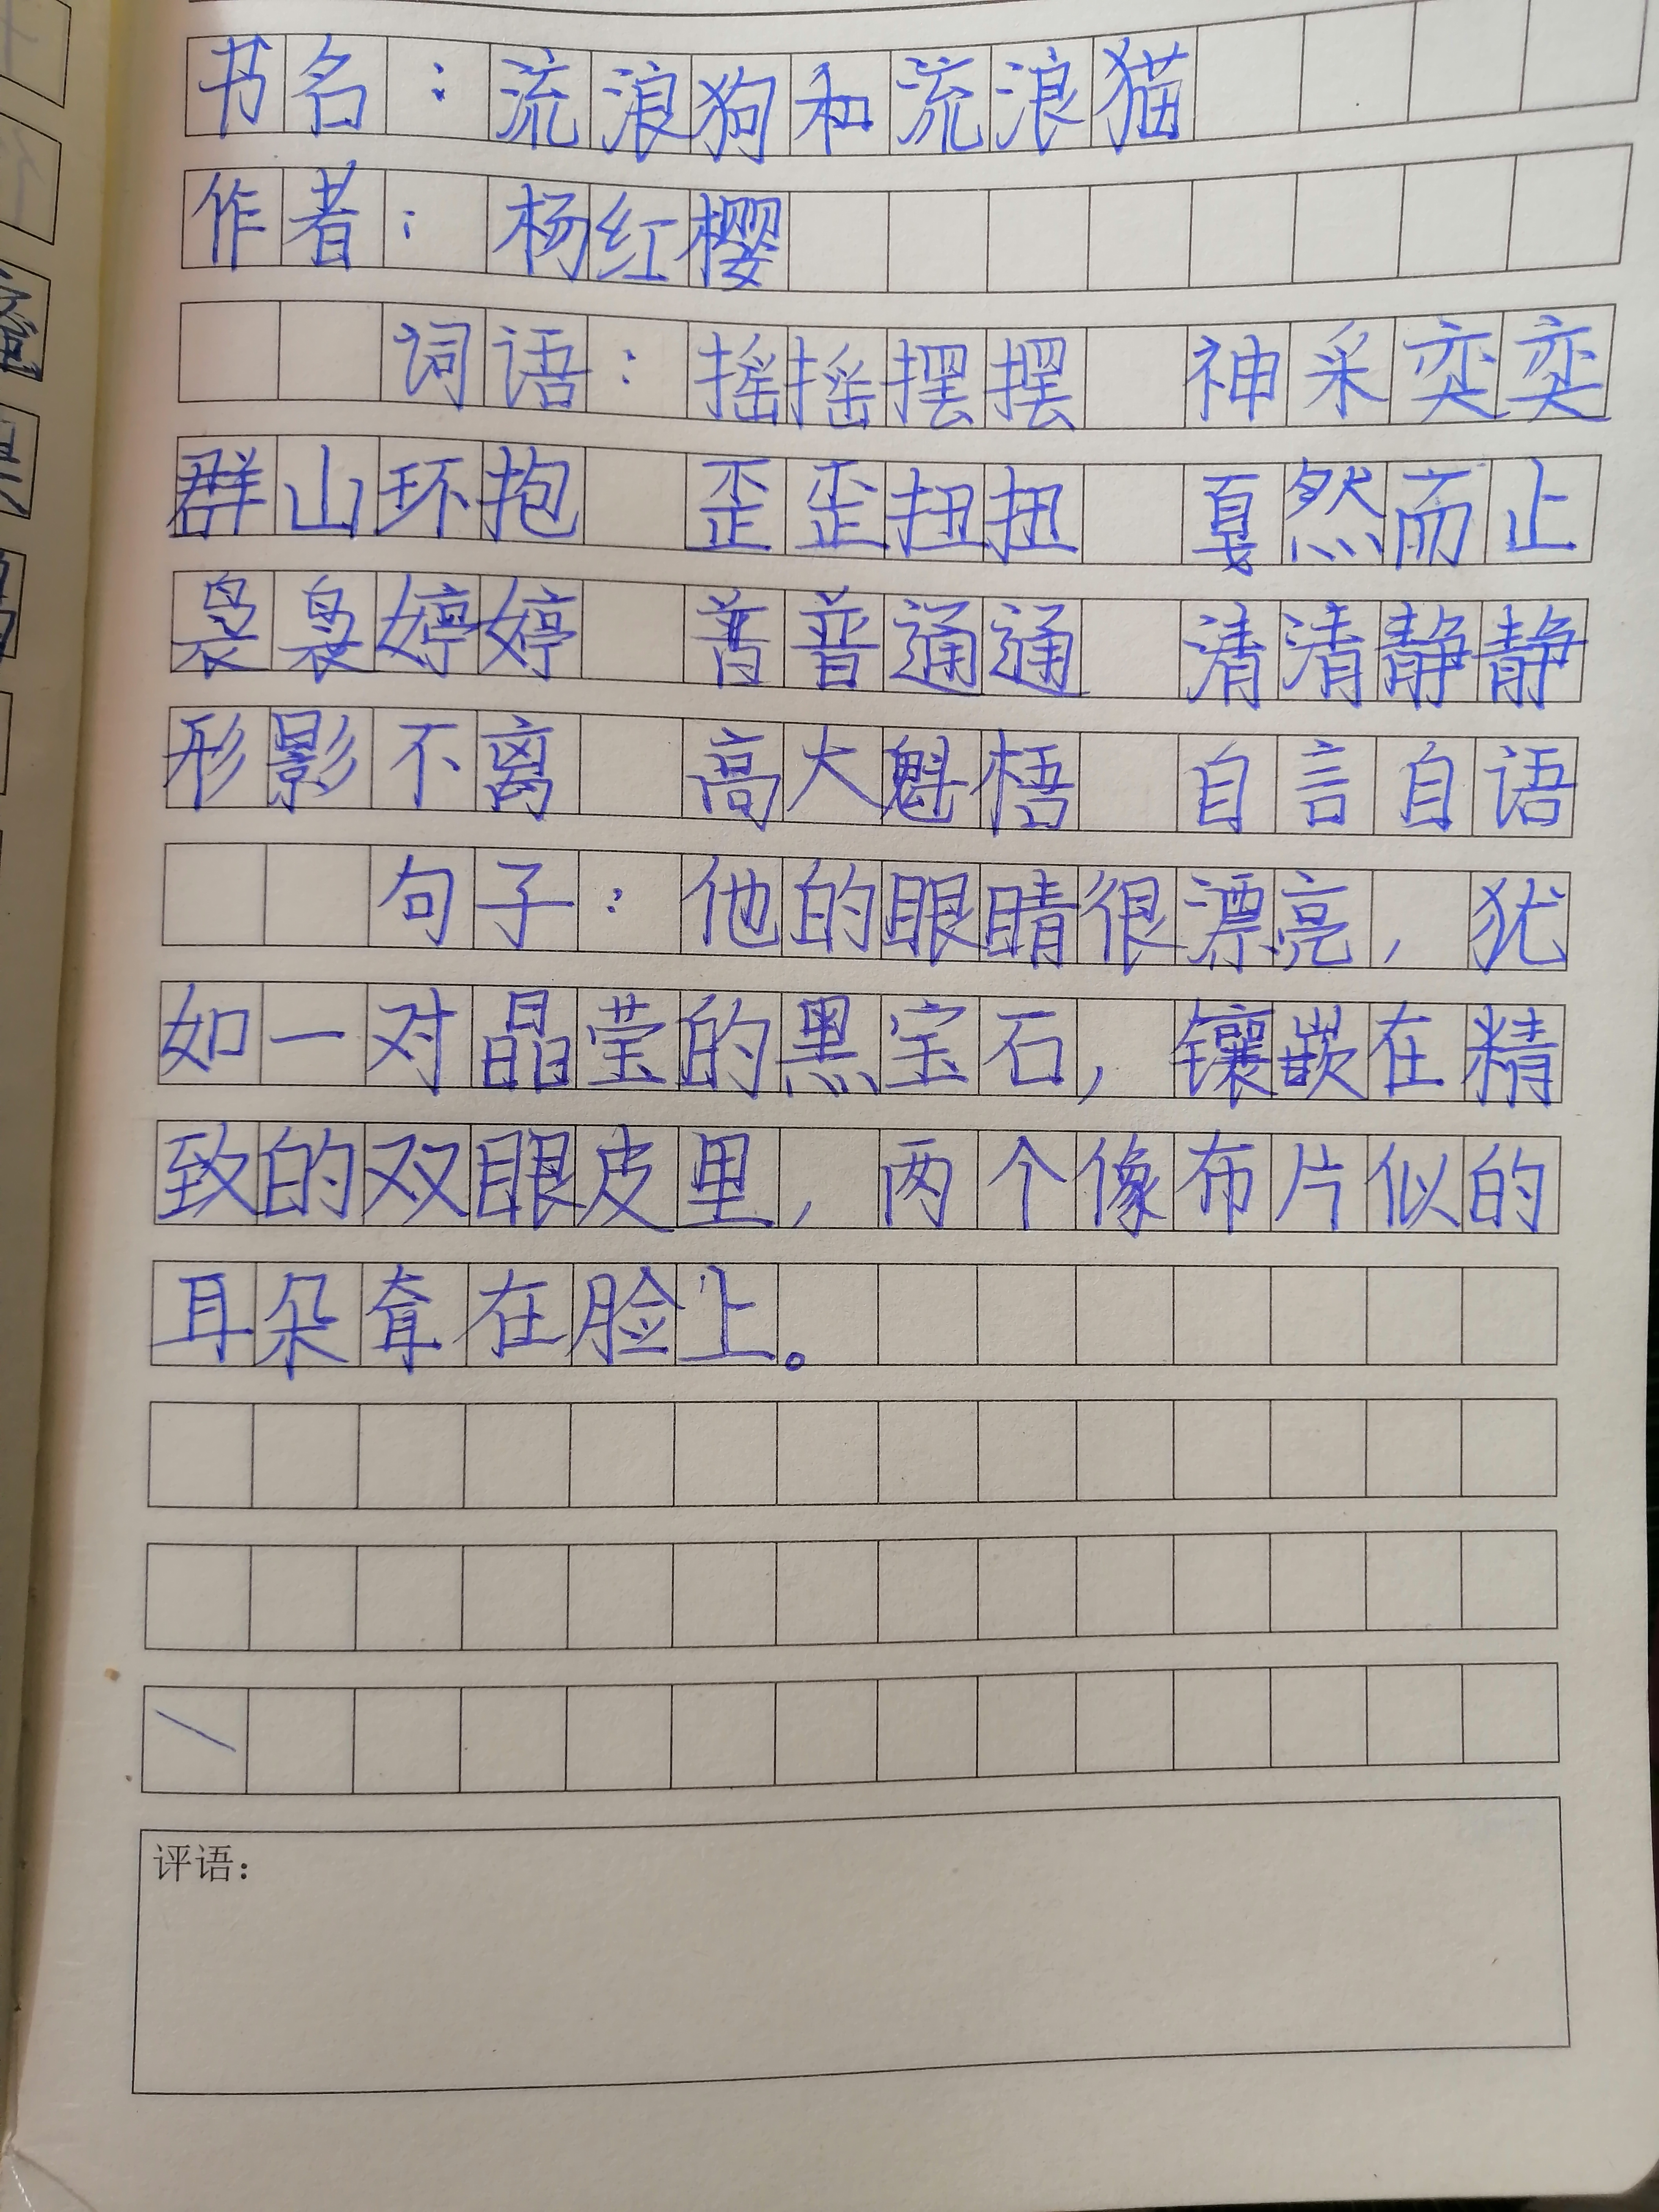 书名：流浪狗和流浪猫
作者：杨红樱
词语：摇摇摆摆 神采奕奕
群山环抱 歪歪扭扭 戛然而止
袅袅婷婷 普普通通 清清静静
形影不离 高大魁梧 自言自语
句子：他的眼睛很漂亮，犹
如一对晶莹的黑宝石，镶嵌在精
致的双眼皮里，两个像布片似的
耳朵耷在脸上。
评语：